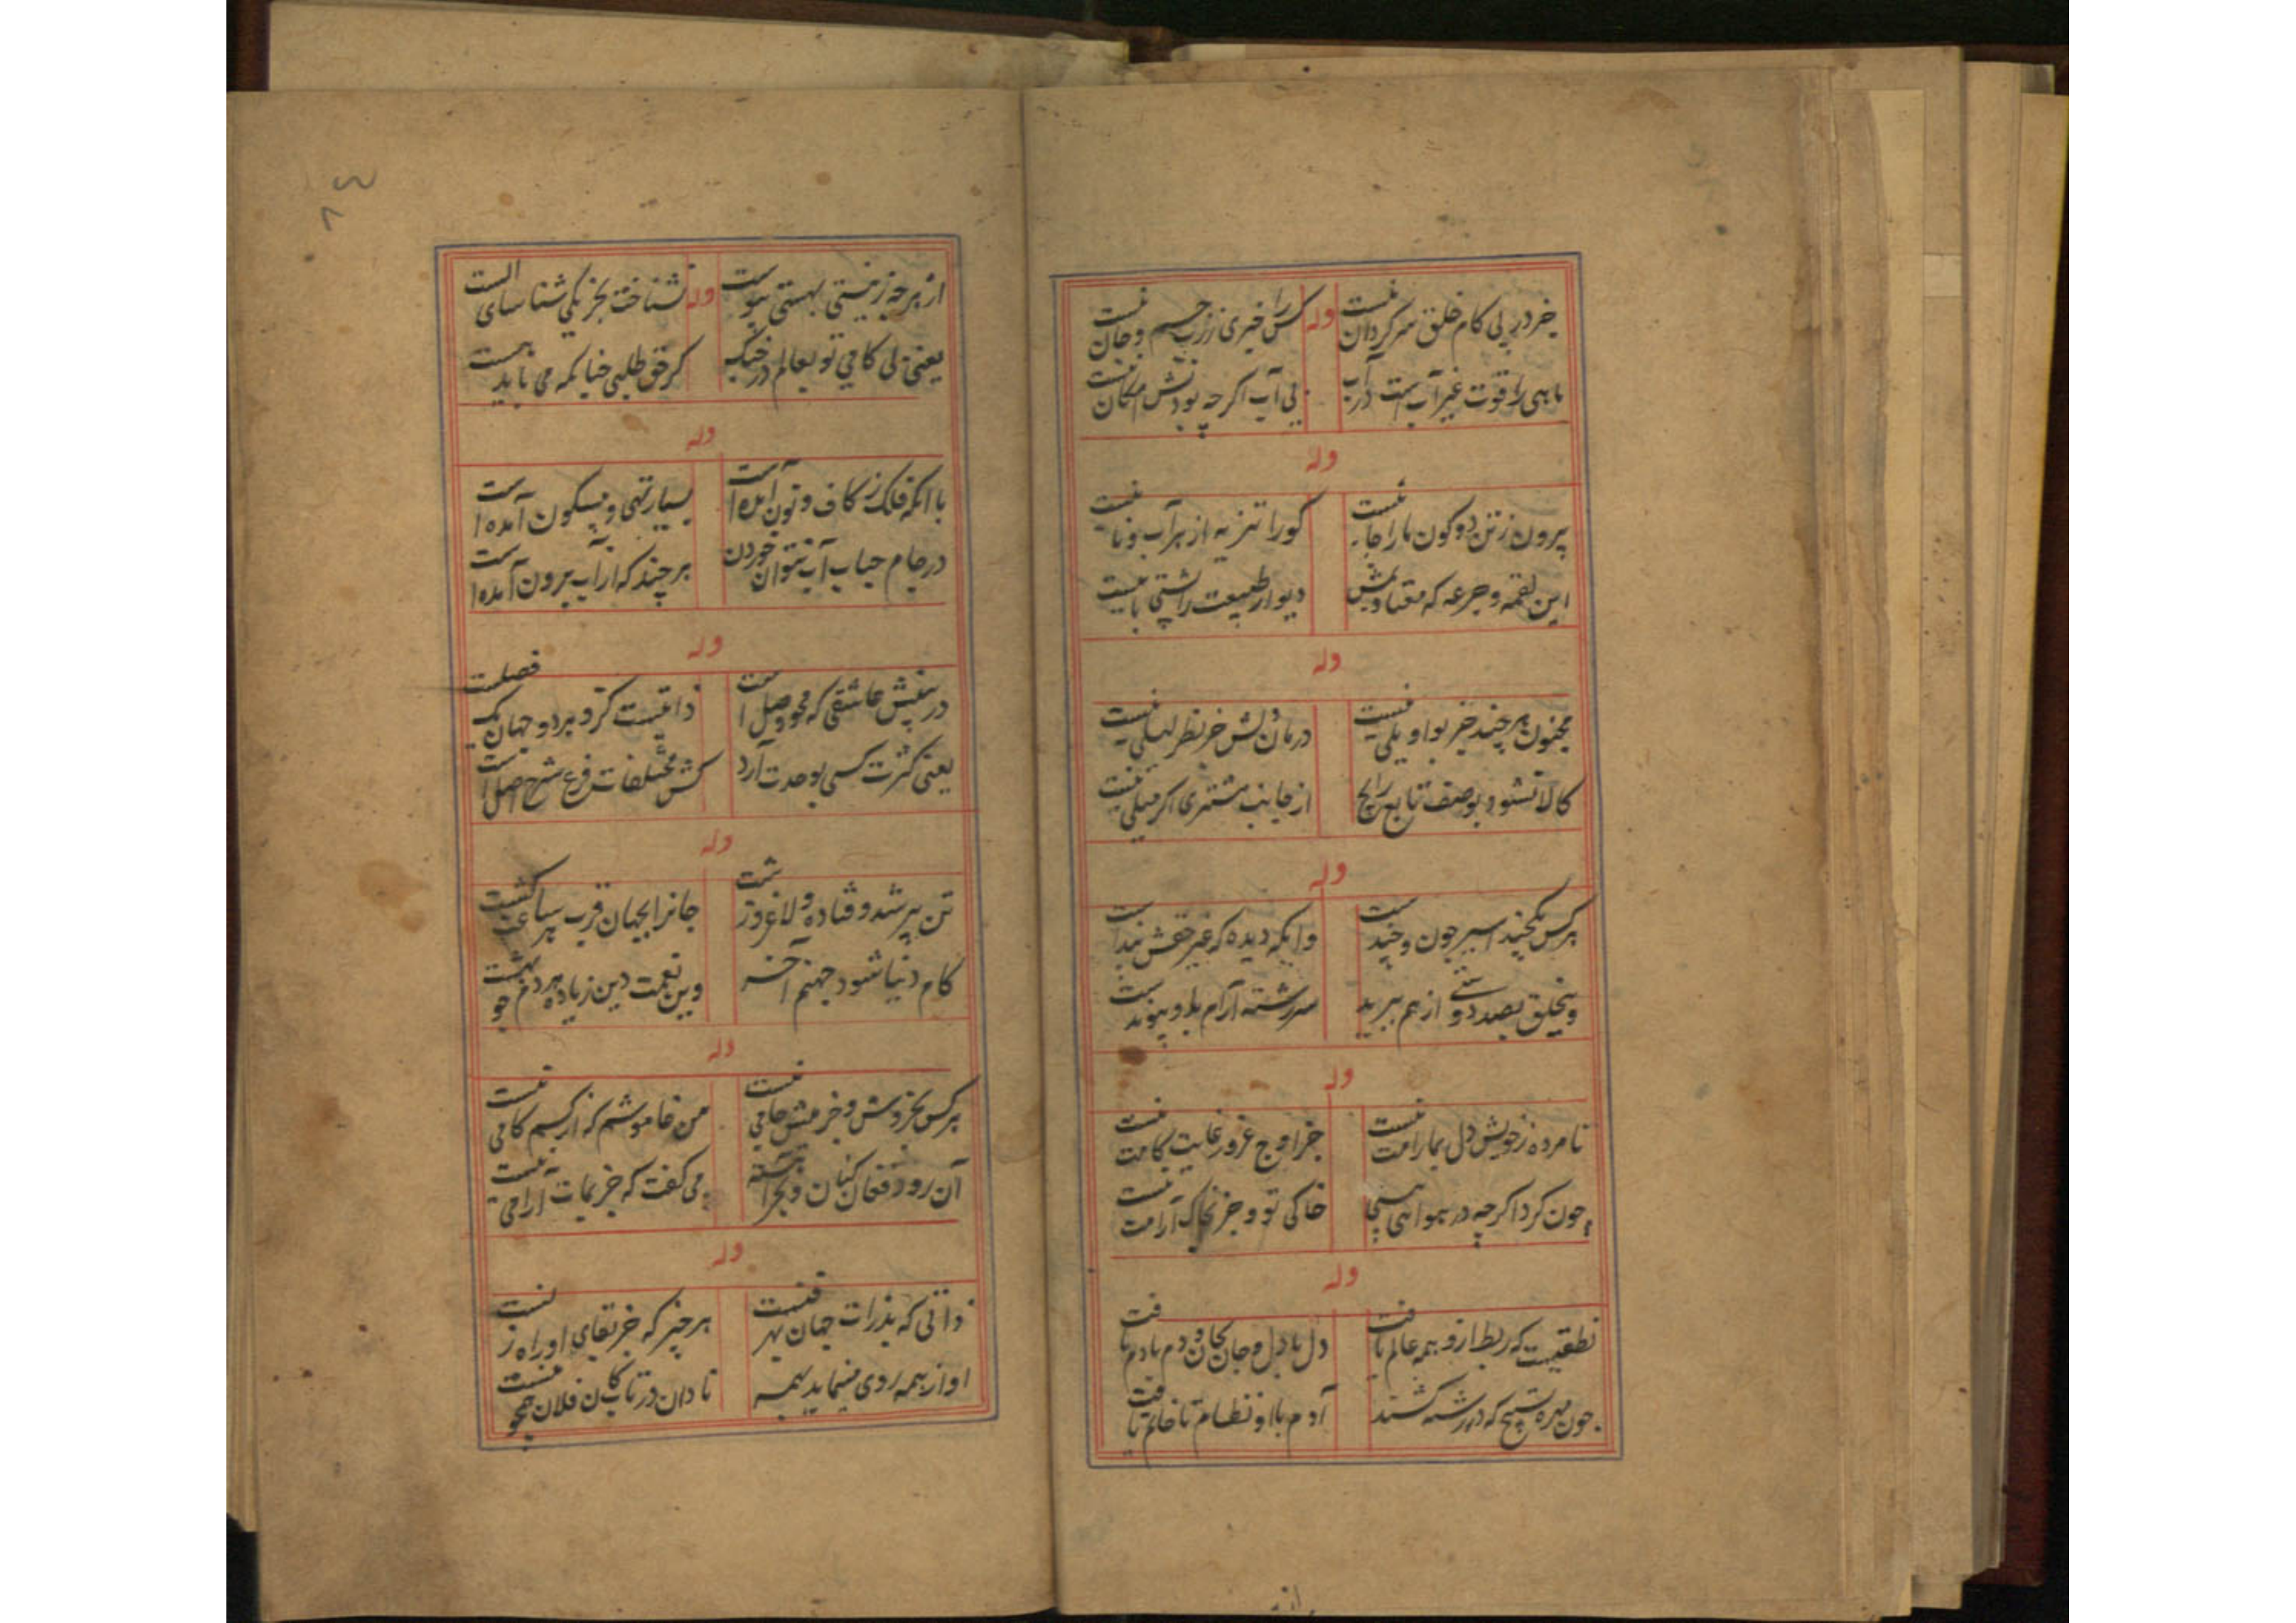 خر در پی کام خلق سرگردان نیست
وله
کس را خبری ز رب جسم و جان نیست
ماهی را قوت غیر آب است در آب
بی آب اگر چه بودنش امکان نیست
وله
بیرون ز تن دو کون ما را جا نیست
کو را تنزیه از بر آب و نا نیست
این لقمه و جرعه که معتاد
دیوار طبیعت را پشتی با نیست
وله
مجنون هر چند جز بواویلی نیست
درمان دلش جز بنظر لیلی نیست
کالا نشود بوصف تابع رایج
از جانب مشتری اگر میلی نیست
وله
هر کس بکچند اسیر چون و چند است
وانکه دیده که غیر حقش بند است
بخلق بصد دوستی از هم ببرید
سر رشته آرام بدو پیوند است
وله
نامرده ز خویش دل بما رامت نیست
جز اوج غرور غایت کامت نیست
چون گرد اگر چه در هوا می پیچی
خاکی تو و جز بخاک آرامت نیست
وله
نطقیست که ربط ازو همه عالم یافت
دل با دل و جان بجان و دم با دم یافت
چون مهره تسبیح که در رشته کشند
آدم با او نظام تا خاتم یافت
از هر چه ز نیستی بهستی پیوست
وله
نشناخت بجز یکی شناسای الست
یعنی بی کامی تو بعالم در جنگ
گر حق طلبی چنانکه می باید هست
وله
با آنکه فلک ز کاف و نون آمده است
بسیار تهی و بیسکون آمده است
در جام حباب آب نتوان خوردن
هر چند که از آب بیرون آمده است
وله
در بینش عاشقی که محو وصل است
ذاتیست کزو هر دو جهان یک فصلست
یعنی کثرت کسی بوحدت آرد
کش مختلفات فرع شرح اصل است
وله
تن پیر شد و فتاده و لاغر و زشت
جانرا بجهان قرب هر ساعت کشت
کام دنیا شود جهنم آخر
وین نعمت دین زیاده هر دم چو بهشت
وله
هر کس بخروش و جز منش جامی نیست
من خاموشم که از کسم کامی نیست
آن رود فغان کنان و بحر آهسته
می گفت که جز بمات آرامی نیست
وله
ذاتی که بذرات جهان
هر چیز که جز بقای او راه
او از همه روی مینماید بهمه
نادان در تاب کان فلان همچو